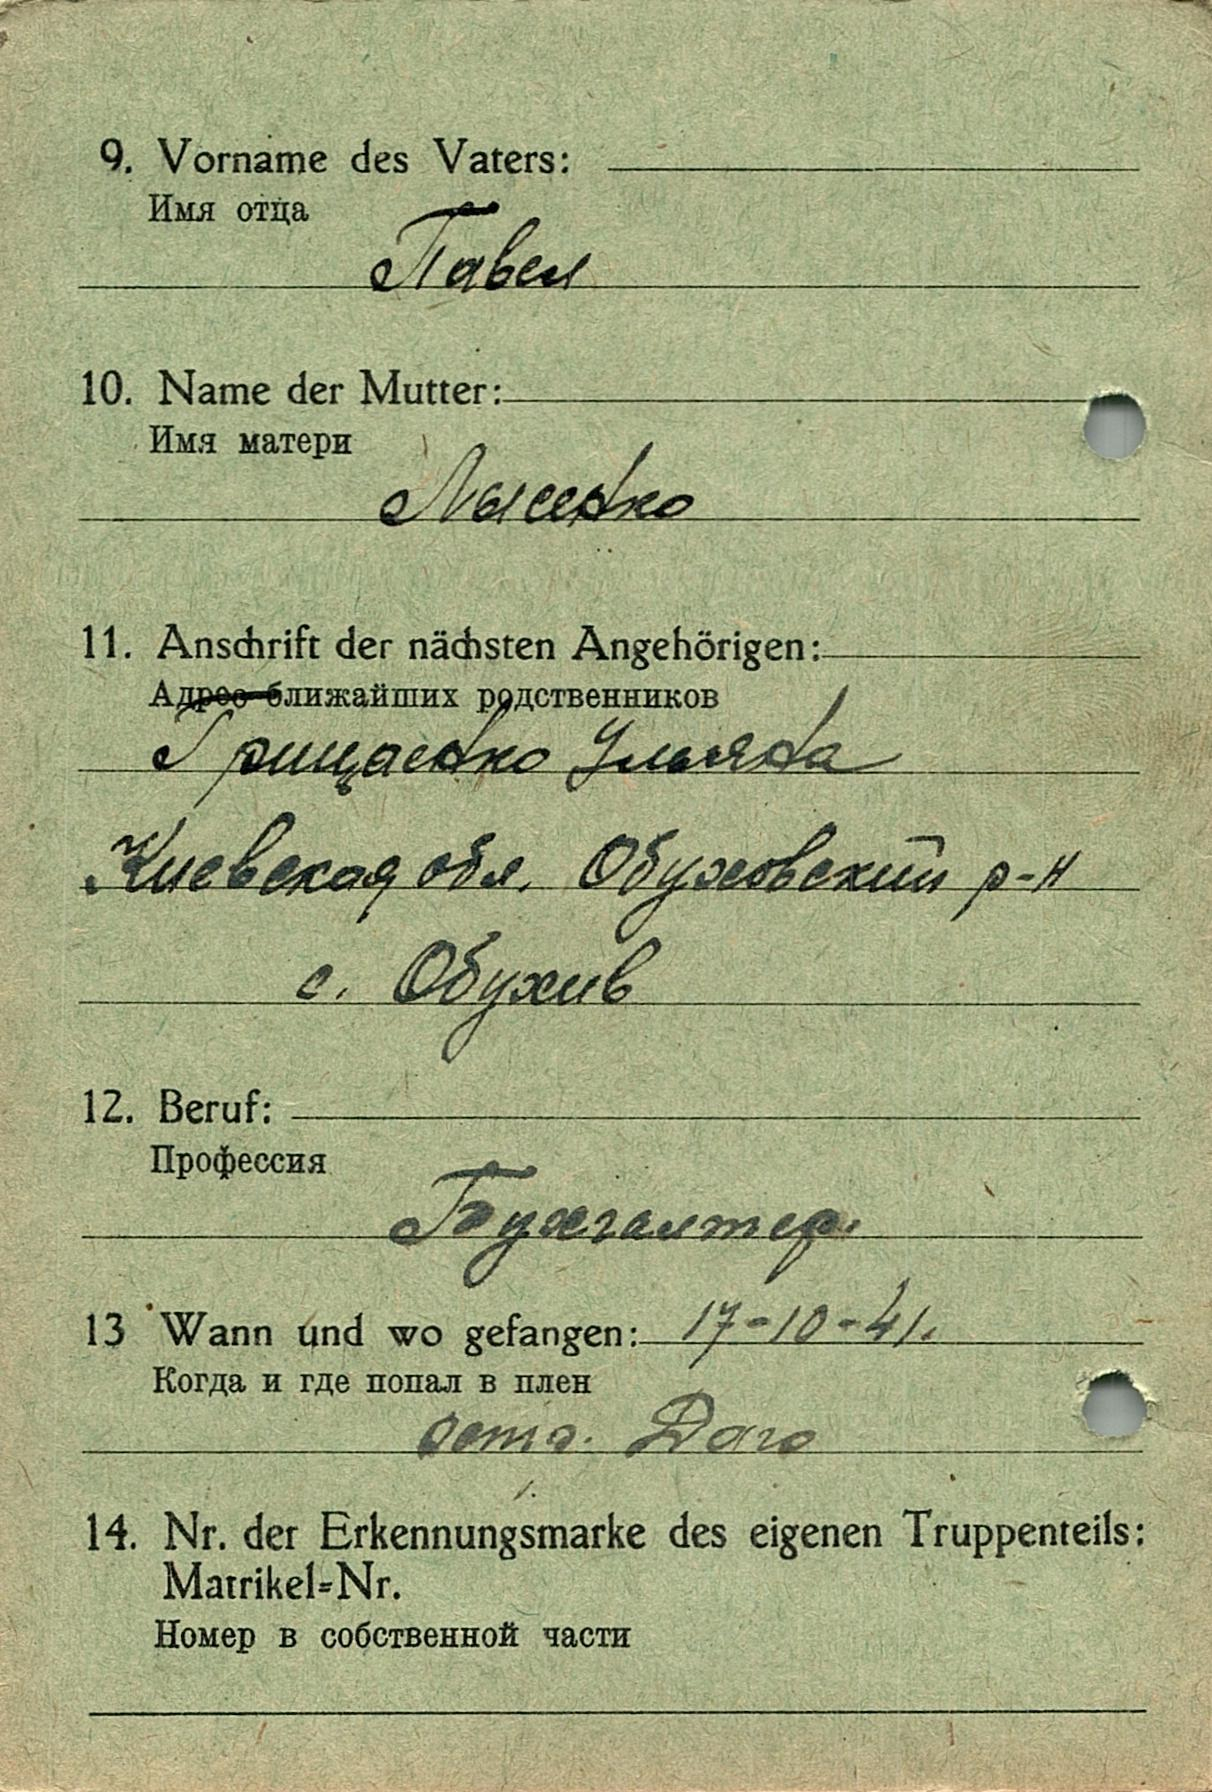 9. Vorname des Vaters:
Имя отца
Павел
10. Name der Mutter:
Имя матери
Лысенко
11. Anschrift der nächsten Angehörigen:
Адрес ближайших родственников
Грищаенко Ульяна
Киевская обл. Обуховский р-н
с. Обухив
12. Beruf:
Профессия
Бухгалтер.
13 Wann und wo gefangen: 17-10-41.
Когда и где попал в плен
Даго
14. Nr. der Erkennungsmarke des eigenen Truppenteils:
Matrikel=Nr.
Номер в собственной части